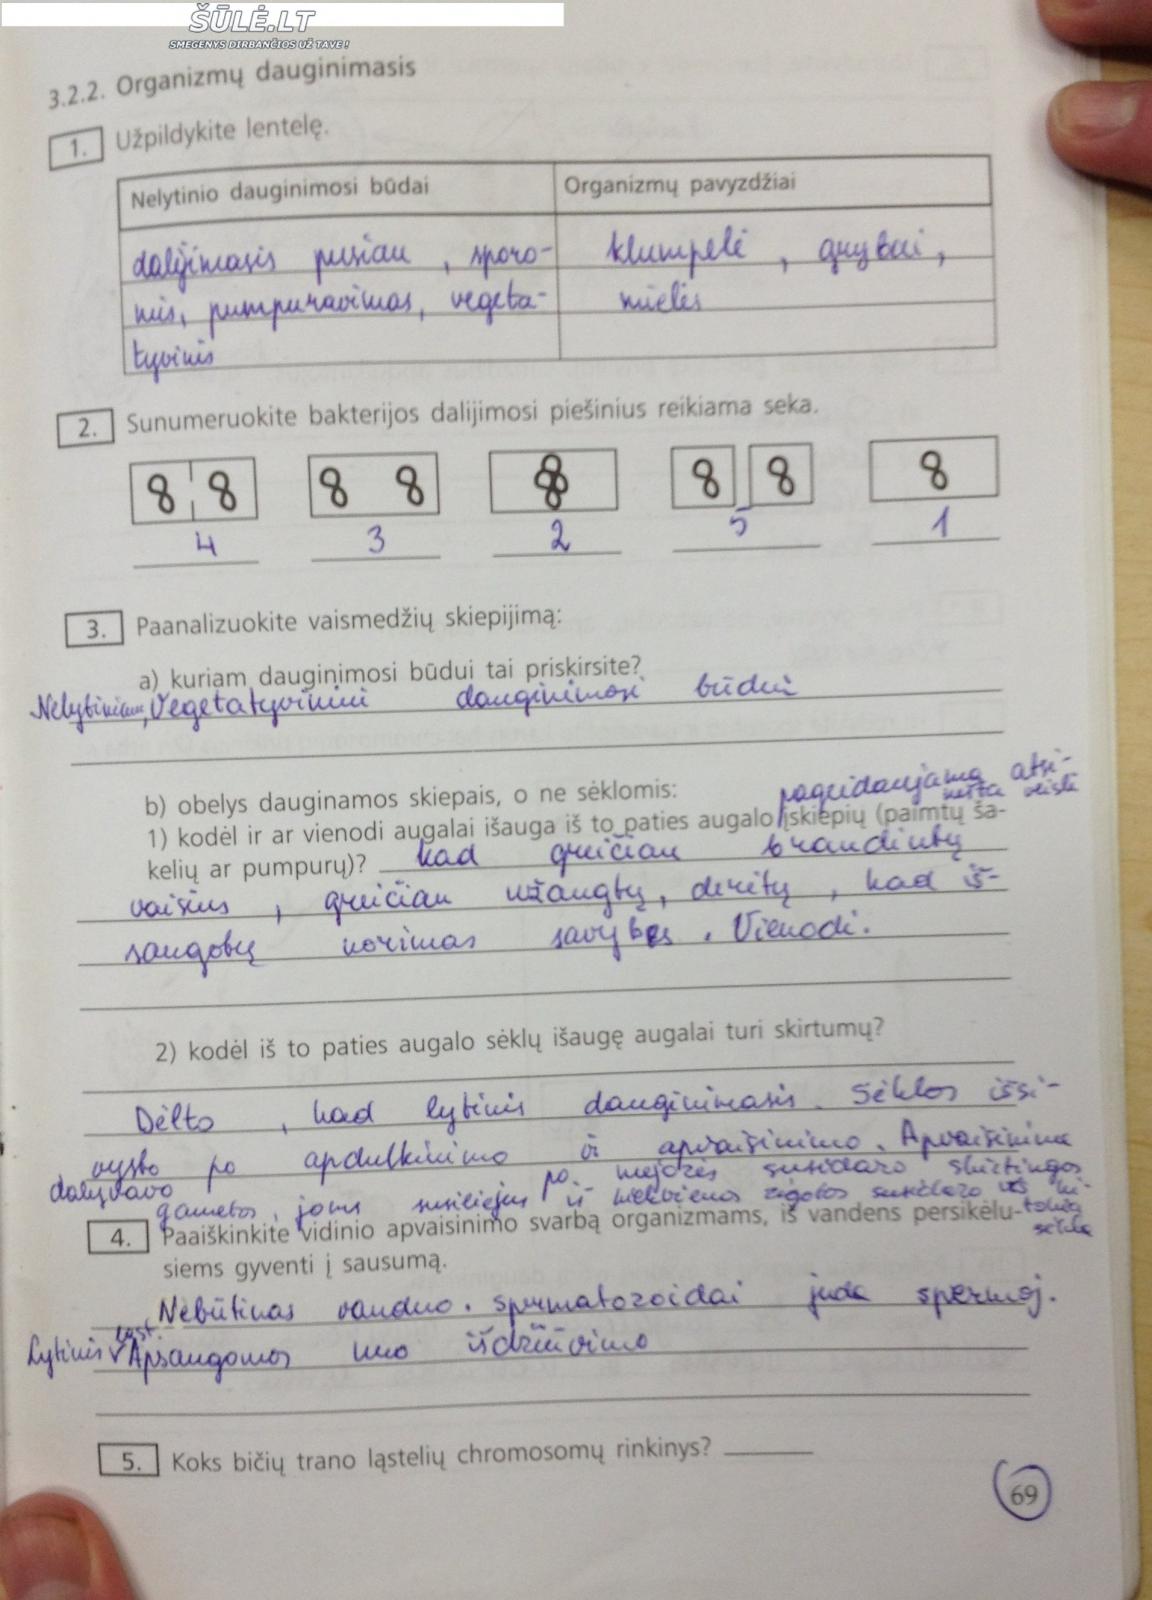 ŠŪLĖ.LT
SMEGENYS DIRBANČIOS UŽ TAVE!
3.2.2. Organizmų dauginimasis
1. Užpildykite lentelę.
Nelytinio dauginimosi būdai
Organizmų pavyzdžiai
dalijimasis pusiau, sporo-
mis, pumpuravimas, vegeta-
tyvinis
klumpelė, grybai,
mielės
2. Sunumeruokite bakterijos dalijimosi piešinius reikiama seka.
8 8 8 8 8 8 8 8
4 3 2 5 1
3. Paanalizuokite vaismedžių skiepijimą:
a) kuriam dauginimosi būdui tai priskirsite?
Nelytiniam, Vegetatyviniui dauginimosi būdui
b) obelys dauginamos skiepais, o ne sėklomis:
pageidaujama atsi-
1) kodėl ir ar vienodi augalai išauga iš to paties augalo įskiepių (paimtų ša-
kelių ar pumpurų)? kad greičiau brandintų
vaisius, greičiau užaugtų, derėtų, kad iš-
saugotų norimas savybes. Vienodi.
2) kodėl iš to paties augalo sėklų išaugę augalai turi skirtumų?
Dėlto, kad lytinis dauginimasis. Sėklos išsi-
vysto po apdulkinimo ir apvaisinimo. Apvaisinime
dalyvavo po mejozės susidaro skirtingos
gametos, joms susiliejus iš kiekvienos zigotos susidaro
4. Paaiškinkite vidinio apvaisinimo svarbą organizmams, iš vandens persikėlu-
sėkla
siems gyventi į sausumą.
Nebūtinas vanduo. spermatozoidai juda spermoj.
Lytinės ląst. Apsaugomos nuo išdžiūvimo
5. Koks bičių trano ląstelių chromosomų rinkinys?
69